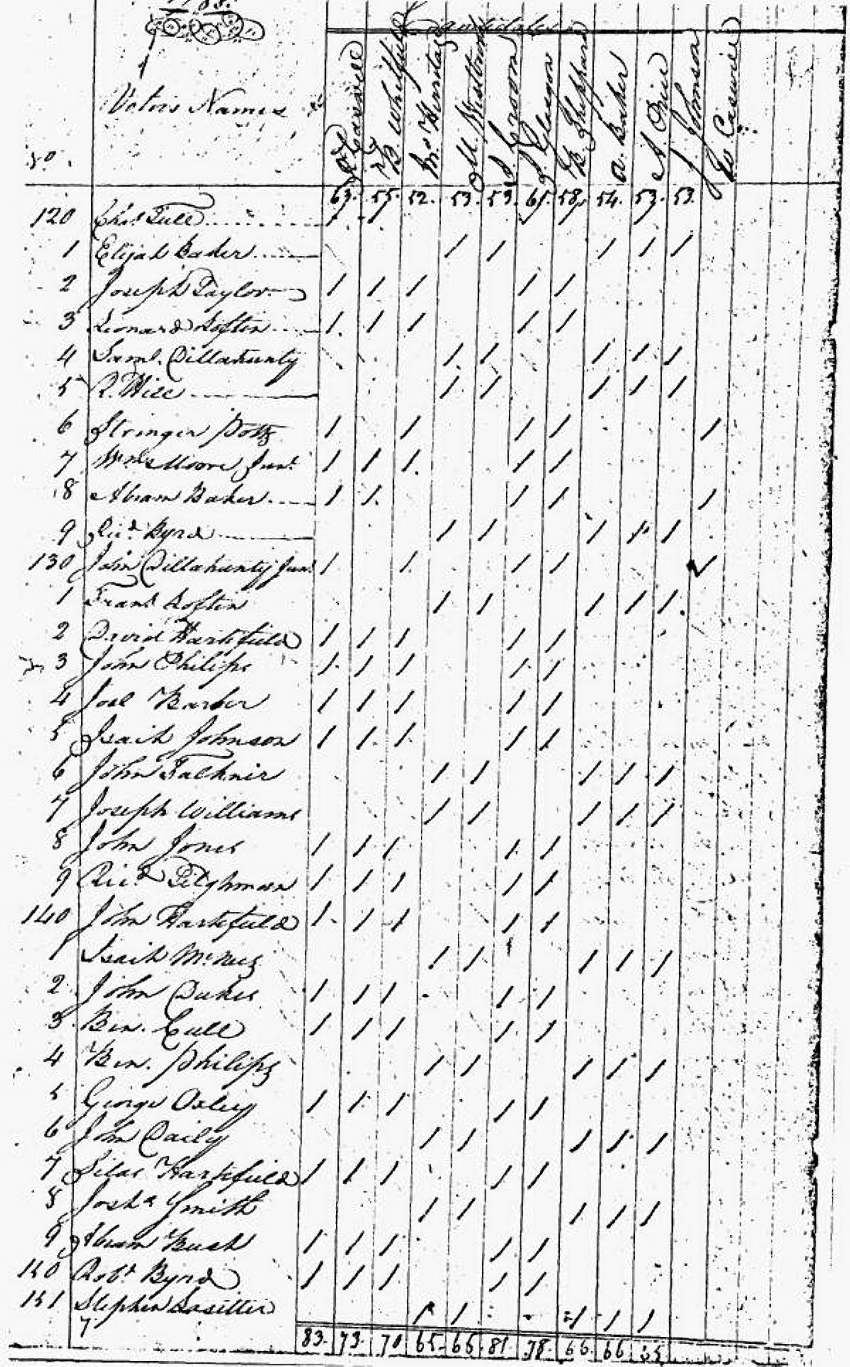 1788.
Candidates
Voters Names
R Caswell
B Whitfield
Js Kinsday
M Westbrook
S Croom
J Glasgow
B Sheppard
A Baker
A Prim
J Johnson
W Caswell
63. 55. 52. 53. 53. 61. 58. 54. 53. 53.
120 Chs. Tull
1 Elijah Baker
2 Joseph Taylor
3 Leonard Loftin
4 Saml. Dillahunty
5 R. Hill
6 Stringer Potts
7 Wm. Moore Junr.
8 Abram Baker
9 Richd Byrd
130 John Dillahunty Junr
1 Frans Loftin
2 David Hartsfield
3 John Philips
4 Joel Barber
5 Isaih Johnson
6 John Falknir
7 Joseph Williams
8 John Jones
9 Richd Tilghman
140 John Hartsfield
1 Isaih McNees
2 John Dukes
3 Ben. Tull
4 Ben. Philips
5 George Oxley
6 John Daily
7 Silas Hartsfield
8 Josha Smith
9 Abram Bush
150 Robt Byrd
151 Stephen Lasitter
83. 73. 70. 65. 65. 81. 78. 66. 66. 65